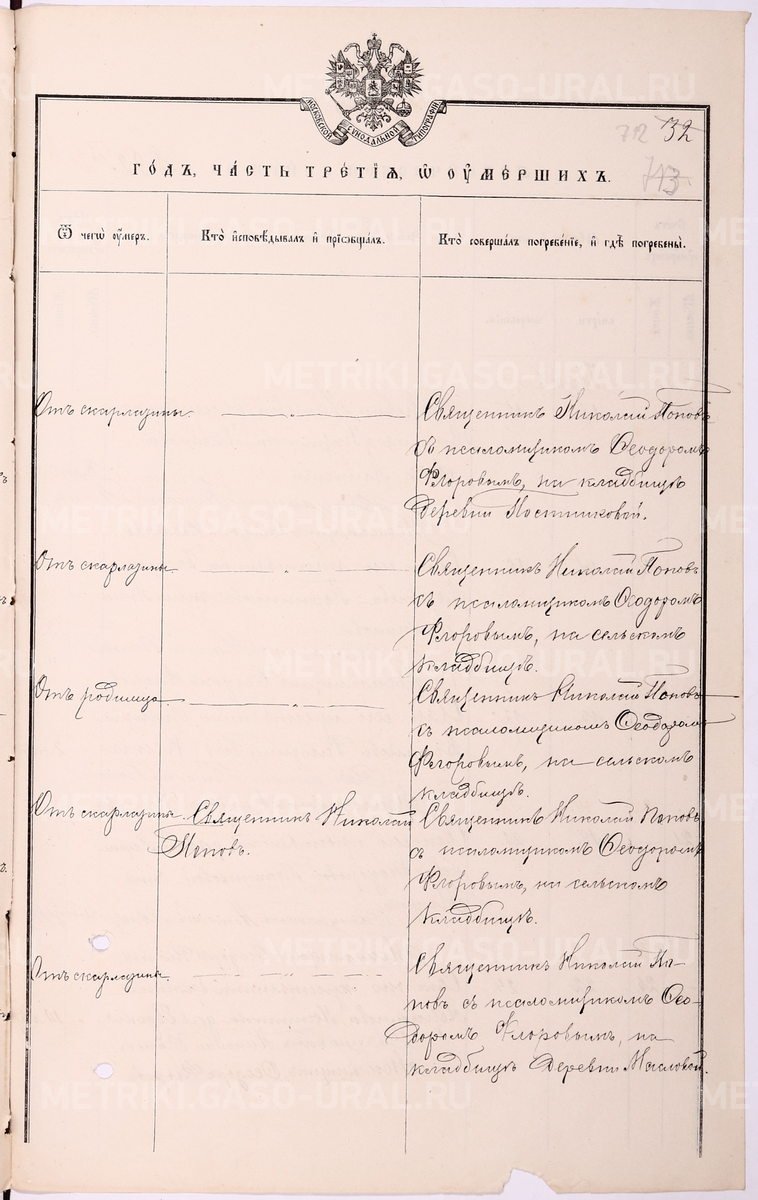 МОСКОВСКОЙ СѴНОДАЛЬНОЙ ТИПОГРАФІИ
712 32
713
ГОДЪ, ЧАСТЬ ТРЕТІѦ, Ѡ ОУМЕРШИХЪ.
Ѿ чегѡ оумеръ.
Кто исповѣдывалъ и пріобщалъ.
Кто совершалъ погребеніе, и гдѣ погребены.
Отъ скарлатины.
Священникъ Николай Поповъ
съ псаломщикомъ Ѳеодоромъ
Флоровымъ, на кладбищѣ
деревни Постниковой.
Отъ скарлатины.
Священникъ Николай Поповъ
съ псаломщикомъ Ѳеодоромъ
Флоровымъ, на сельскомъ
кладбищѣ.
Отъ родимца
Священникъ Николай Поповъ
съ псаломщикомъ Ѳеодоромъ
Флоровымъ, на сельскомъ
кладбищѣ.
Отъ скарлатины
Священникъ Николай
Поповъ.
Священникъ Николай Поповъ
съ псаломщикомъ Ѳеодоромъ
Флоровымъ, на сельскомъ
кладбищѣ.
Отъ скарлатины.
Священникъ Николай По-
повъ съ псаломщикомъ Ѳео-
доромъ Флоровымъ, на
кладбищѣ деревни Масловой.
METRIKI.GASO-URAL.RU